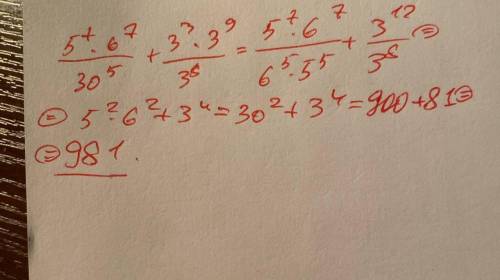 5⁷·6⁷/30⁵ + 3³·3⁹/3⁸ = 5⁷·6⁷/6⁵·5⁵ + 3¹²/3⁸ =
= 5²·6² + 3⁴ = 30² + 3⁴ = 900 + 81 =
= 981.